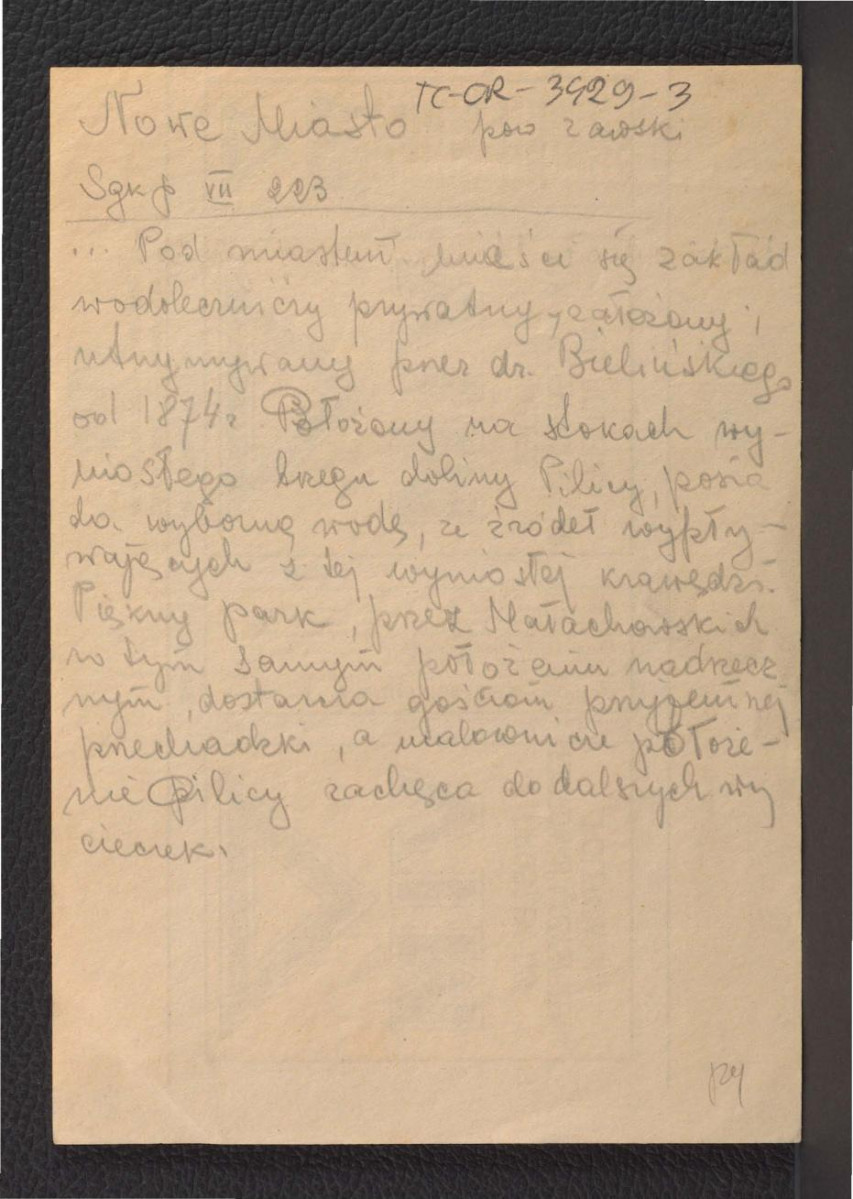 TC-OR-3929-3
Nowe Miasto pow rawski
Sgkp VII 223
... Pod miastem mieści się zakład
wodoleczniczy prywatny, założony i
utrzymywany przez dr. Bielińskiego
od 1874 r Położony na stokach wy-
niosłego brzegu doliny Pilicy, posia
da wyborną wodę, ze źródeł wypły-
wających z tej wyniosłej krawędzi.
Piękny park, przez Małachowskich
w tym samym położeniu nadrzecz
nym, dostarcza gościom przyjemnej
przechadzki, a malownicze położe-
nie Pilicy zachęca do dalszych wy
cieczek.